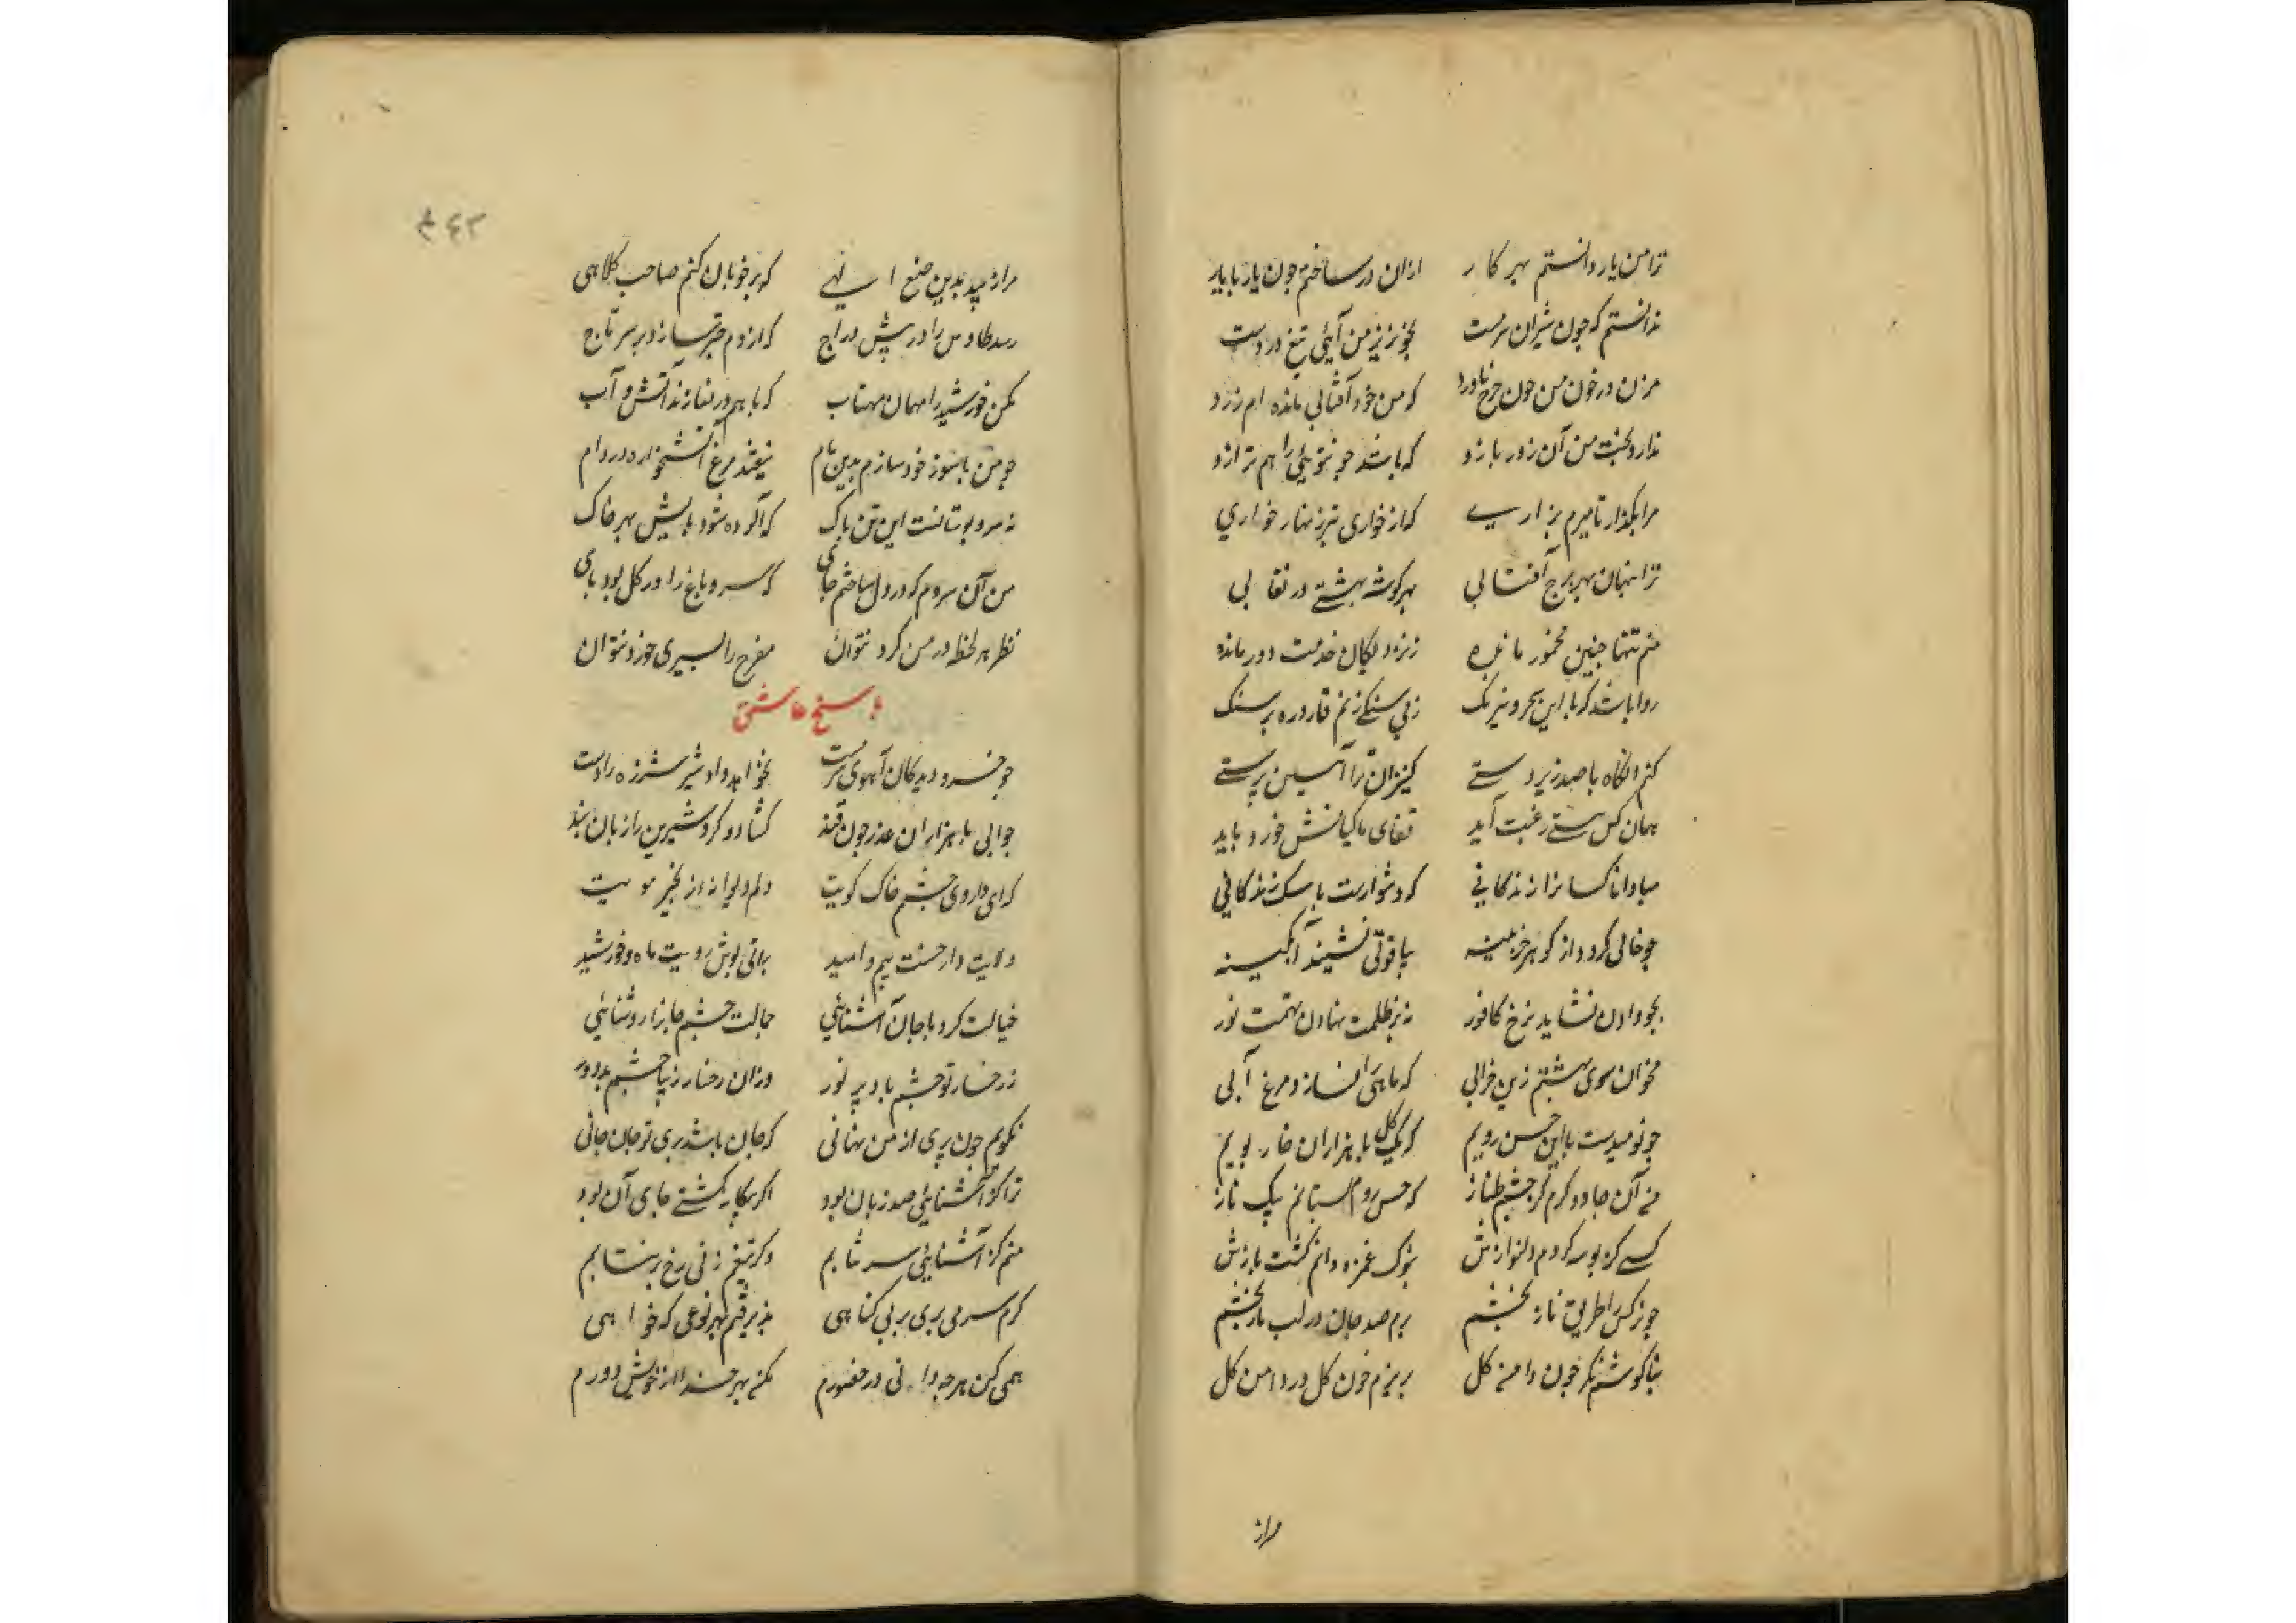 ترا من یار دانستم بهر کار    ازان در ساختم چون یار با یار
ندانستم که چون شیران سرمست    بخونریز من آیی تیغ در دست
مزن در خون من چون چرخ ناورد    که من خود آفتابی مانده ام زرد
ندارد بخت من آن زور بازو    که باشد چو تویی را هم ترازو
مرا بگذار تا میرم بزاری    که از خواری بتر نبنهار خواری
ترا پنهان بهر برج آفتابی    بهر گوشه بهشتی در نقابی
منم تنها چنین مخمور مانده    ز نزدیکان خدمت دور مانده
روا باشد که با این سحر و نیرنگ    زبی سنگی زنم قاروره بر سنگ
کنم آنگاه با صد زیر دستی    کنیزان ترا آستین پرستی
همان کس سستی رغبت آید    قفای ماکیانش خورد باید
مبادا ناکسانرا زندگانی    که دشوارست با سک زندگانی
چو خالی گردد از گوهر خزینه    بیاقوتی نشیند آبگینه
بجو دادن نشاید نرخ کافور    نه بر ظلمت نهادن تهمت نور
مخوان سوی بهشتم زین خرابی    که ماهی را نسازد مرغ آبی
چو نومیدست با این حسن رویم    که یک گل با هزاران خار بویم
نه آن جادوگرم کز چشم طناز    که حس روم بستانم بیک ناز
کسی کز بوسه کردم دلنوازش    بنوک غمزه دانم کشت بازش
چو نرگس را طریق ناز بخشم    برم صد جان و در لب باز بخشم
بناگوشم نگر چون دامن گل    بریزم خون گل در دامن گل
مراز
۲۴۳
مرا زیبد بدین صنع الهی    که بر خوبان کنم صاحب کلاهی
رسد طاوس را در پیش دراج    که از دم چتر سازد بر سر تاج
مکن خورشید را مهمان مهتاب    که با هم در نسازند آتش و آب
چو من با سوز خود سازم بدین نام    نیفتد مرغ آتشخواره در دام
نه سرو بوستانست این تن پاک    که آلوده شود پایش بهر خاک
من آن سروم که در دل ساختم جای    که سرو باغ را در گل بود پای
نظر هر لحظه در من کرد نتوان    مفرح را بسیری خورد نتوان
پاسخ عاشق
چو خسرو دید کان آهوی سرمست    نخواهد داد شیر شرزه را دست
جوابی با هزاران عذر چون قند    گشاد و کرد شیرین را زبان بند
که ای داروی چشم خاک کویت    دلم دیوانه زنجیر مویت
ولایت دار حسنت بیم و امید    براتی پوش رویت ماه و خورشید
خیالت کرد با جان آشنایی    جمالت چشم جانرا روشنایی
ز رخسار تو چشمم باد پر نور    وزان رخسار زیبا چشم بد دور
نگویم چون پری از من نهانی    که جان باشد پری تو جان جانی
ترا کز آشنایی صد زبان بود    اگر بیگانه گشتی جای آن بود
منم کز آشنایی سر نتابم    وگر تیغم زنی رخ بر نتابم
گرم سر می بری بر بی گناهی    پذیرفتم بهر نوعی که خواهی
همی کن هر چه دانی در حضورم    مکن بهر خدا از خویش دورم